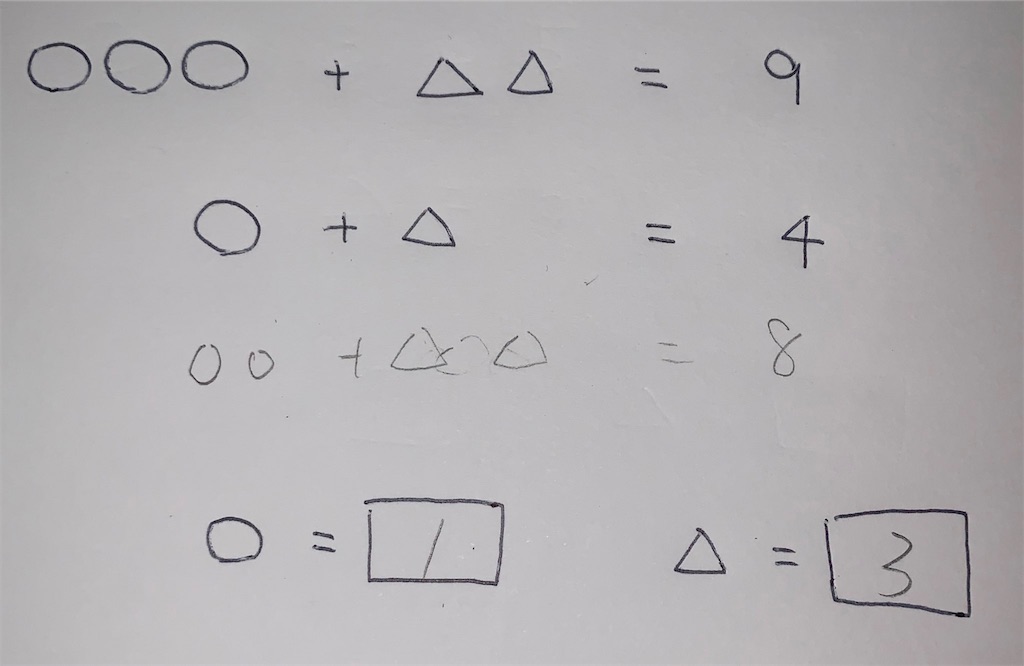 ○○○ + △△ = 9
○ + △ = 4
○○ + △△ = 8
○ = 1 △ = 3